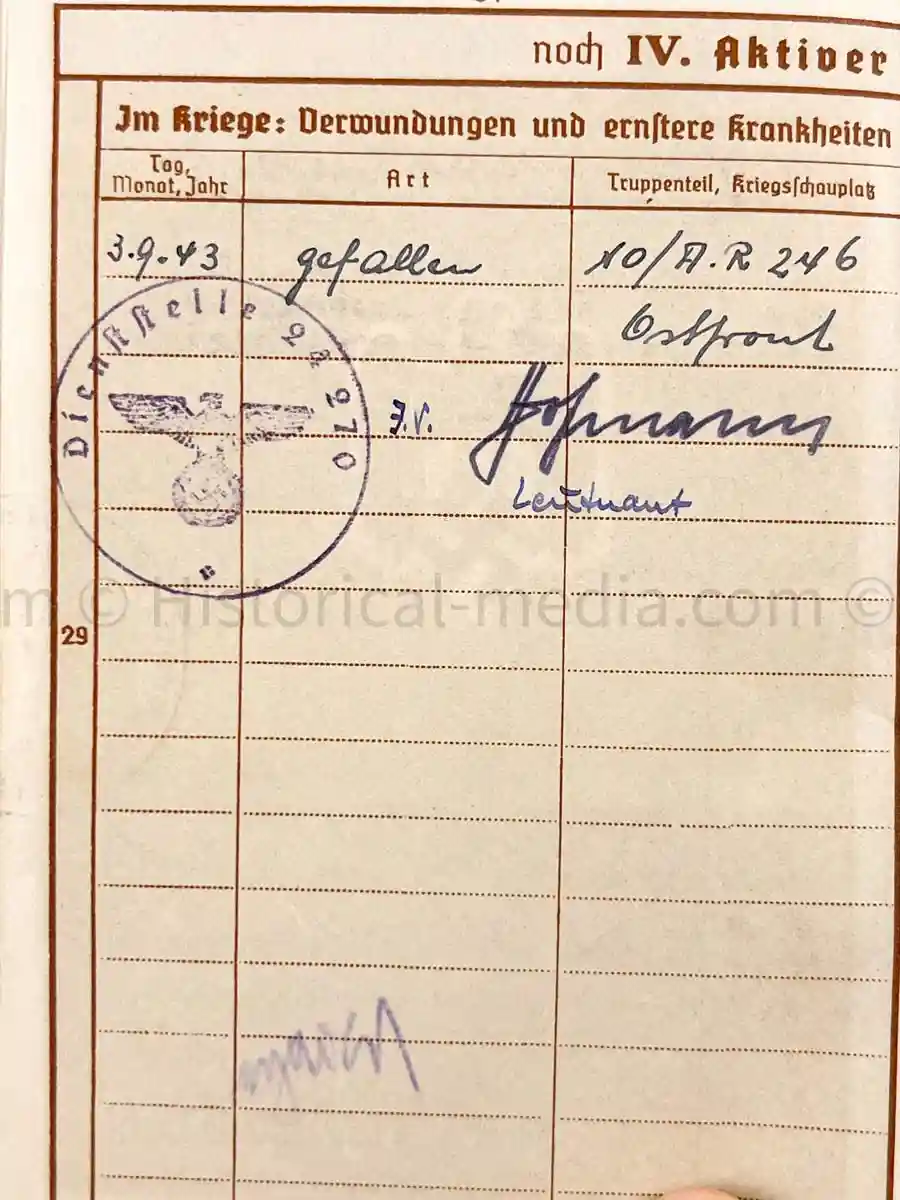 noch IV. Aktiver
Im Kriege: Verwundungen und ernstere Krankheiten
Tag,
Monat, Jahr
Art
Truppenteil, Kriegsschauplatz
3.9.43
gefallen
10/A.R 246
Ostfront
Dienststelle 24 270
B
J.V.
Hofmann
Leutnant
m © Historical-media.com ©
29